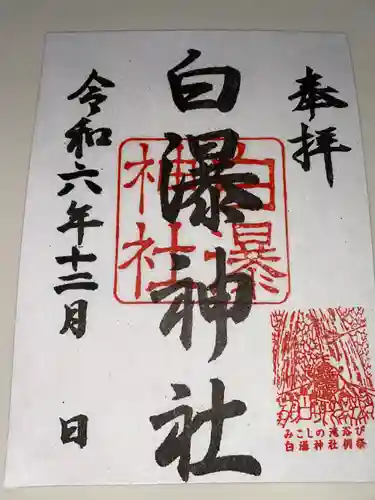 奉拝
白瀑神社
白瀑神社
みこしの滝浴び
白瀑神社例祭
令和六年十二月 日